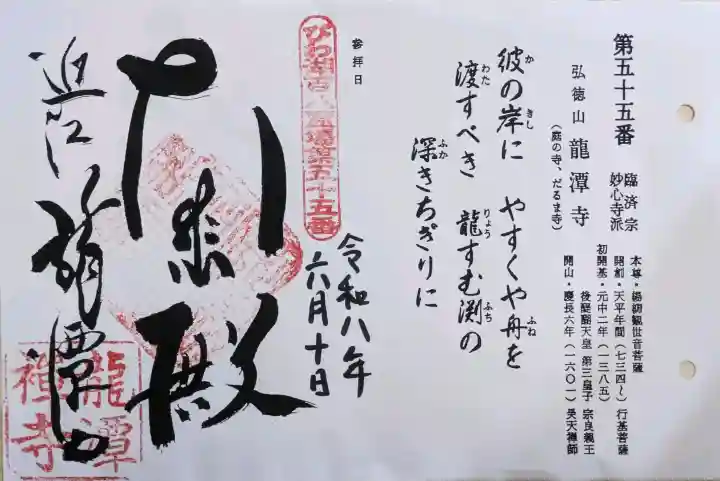 第五十五番
臨済宗
妙心寺派
弘徳山 龍潭寺
(庭の寺、だるま寺)
本尊・楊柳観世音菩薩
開創・天平年間(七三四〜)行基菩薩
初開基・元中二年(一三八五)
後醍醐天皇 第三皇子 宗良親王
開山・慶長六年(一六〇一)昊天禅師
彼の岸に やすくや舟を
か きし ふね
渡すべき 龍すむ渕の
わた りょう ふち
深きちぎりに
ふか
参拝日
令和八年
六月十日
びわ湖百八霊場第五十五番
殿
近江 龍潭寺
龍潭
禅寺